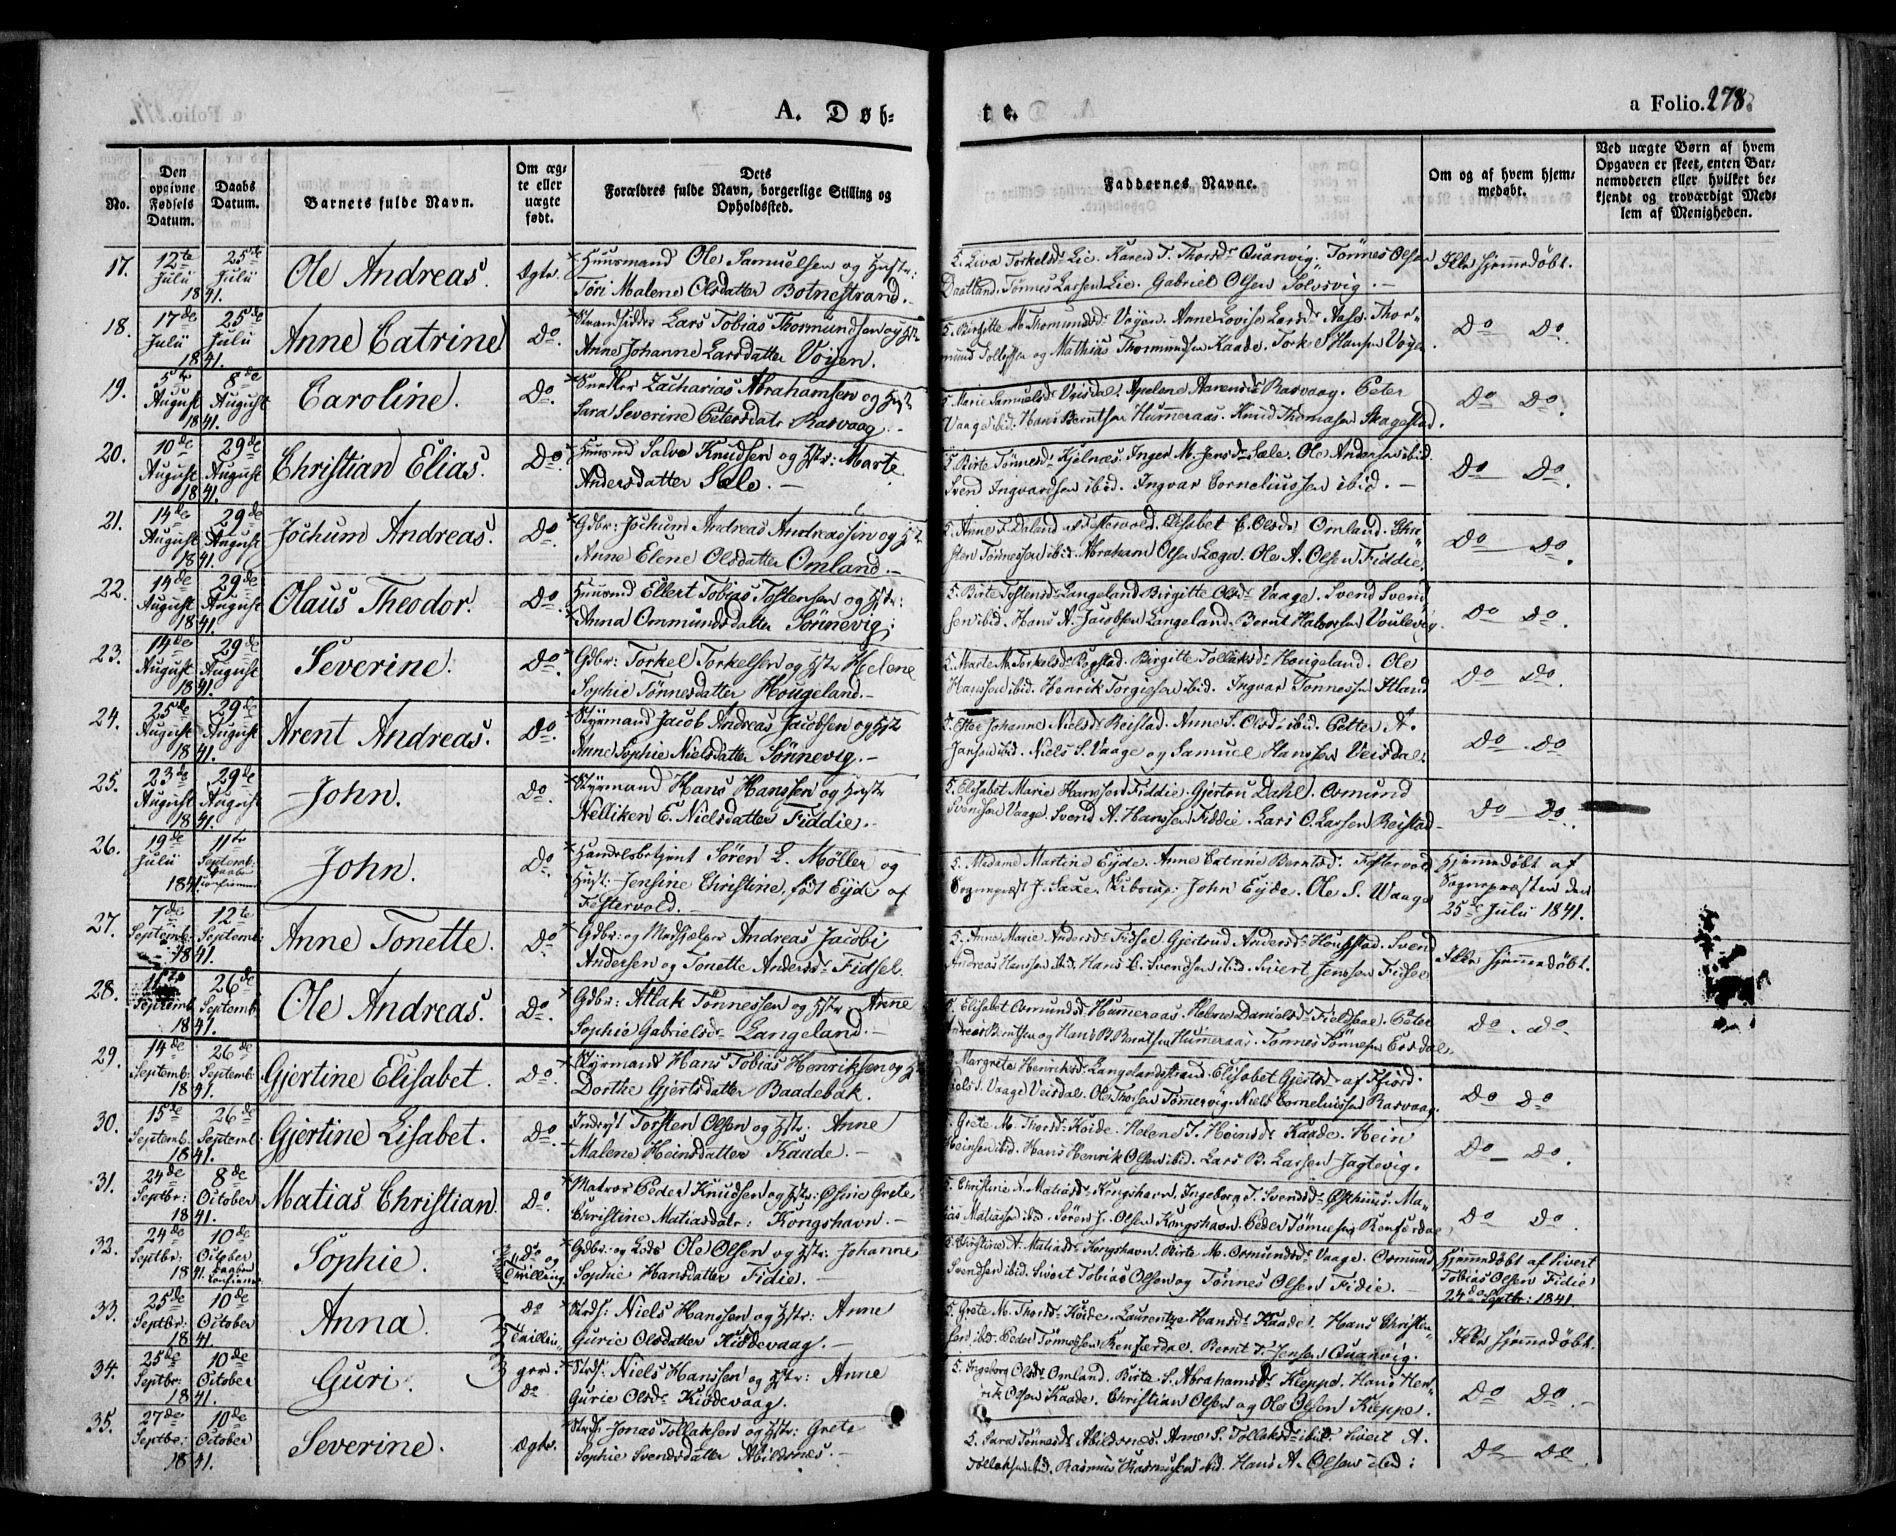 A. Døb-
te.
a Folio. 278.
No.
Den opgivne Fødsels Datum.
Daabs Datum.
Barnets fulde Navn.
Om ægte eller uægte født.
Dets Forældres fulde Navn, borgerlige Stilling og Opholdssted.
Faddernes Navne.
Om og af hvem hjemmedøbt.
Ved uægte Børn af hvem Opgaven er skeet, enten Barnemoderen eller hvilket bekjendt og troværdigt Medlem af Menigheden.
17. 12te Julii 1841. 25de Julii Ole Andreas. Ægte. Huusmand Ole Samuelsen og Hustr:
Tøri Malene Olsdatter Botnestrand.
5. Liva Torkelsd. Lie. Karen T. Thorsdr Quanvig. Tönnes Olsen
Daatland. Tönnes Larsen Lie. Gabriel Olsen Solvsvig. Ikke hjemmedøbt.
18. 17de Julii 1841. 25de Julii Anne Catrine Do. Strandsidder Lars Tobias Thormundsen og Hstr
Anne Johanne Larsdatter Vöyen.
5. Birgitte M. Thomundsdr Vöyen. Anne Lovise Larsdr Aase. Thor-
mund Tollefsen og Mathias Thormundsen Kaade. Torkel S Hansen Vöyen. Do Do.
19. 5te August 1841. 8de August Caroline. Do. Snedker Zacharias Abrahamsen og Hstr
Sara Severine Petersdatr Rasvaag.
5. Marie Samuelsdr Veisdal. Apelene Aarensdr Rasvaag. Peter
Vaage ibid. Hans Berntsen Hummeraas. Knud Thomasen Skagestad. Do Do.
20. 10de August 1841. 29de August Christian Elias. Do. Huusmd Salve Knudsen og Hstr: Marte
Andersdatter Sæle.
5. Birte Tönnesdr Kjelnæs. Inger M. Jensdr Sæle. Ole Andersen ibid.
Svend Ingvardsen ibid. Ingvar Corneliussen ibid. Do Do.
21. 14de August 1841. 29de August Jochum Andreas. Do. Gdbr: Jochum Andreas Andreassen og Hstr
Anne Elene Olsdatter Omland.
5. Anne F. Daland af Festervold. Elisabet E. Olsdr Omland. Chri-
sten Tönnessen ibid. Abraham Olsen Lega. Ole A. Olsen Fiddie. Do Do.
22. 14de August 1841. 29de August Olaus Theodor. Do. Huusmd Ellert Tobias Tostensen og Hstr:
Anna Ommundsdatter Sönnevig.
5. Birte Tostensdr Langeland. Birgitte Olsdr Vaage. Svend Svend-
sen ibid. Hans A. Jacobsen Langeland. Bernt Halvorsen Voulevig. Do Do.
23. 14de August 1841. 29de August Severine. Do. Gdbr: Torkel Torkelsen og Hstr Helene
Sophie Tönnesdatter Hougeland.
5. Marte M. Torkelsdr Rogstad. Birgitte Tollaksdr Hougeland. Ole
Hanssen ibid. Henrik Torgiersen ibid. Ingvar Tonnessen Stland Do Do.
24. 25de August 1841. 29de August Arent Andreas. Do. Styrmand Jacob Andreas Jacobsen og Hstr
Anne Sophie Nielsdatter Sönnevig.
Johanne Nielsdr Reistad. Anne S. Olsdr ibid. Petter A.
Jansen ibid. Niels S. Vaage og Samuel Hanssen Veisdal. Do Do
25. 23de August 1841. 29de August John. Do. Styrmand Hans Hanssen og Hustr
Nelliken E. Nielsdatter Fiddie.
5. Elisabet Marie Hanssen Fiddie. Gjertru Dahl. Osmund
Svendsen Vaage. Svend A. Hanssen Fiddie. Lars O. Larsen Reistad. Do Do.
26. 19de Julii 1841. 11te Septemb: Daaben Confirmeret John. Do. Handelsbetjent Sören L. Möller og
Hust: Jensine Christine, født Eyde af
Festervold.
5. Madame Martine Eyde. Anne Catrine Berntsd: Festervold
Sogneprest J. Saxe. John Eyde. Ole S. Waage Hjemmedøbt af
Sognepresten den
25de Julii 1841.
27. 7de Septemb: 1841. 12te Septemb: Anne Tonette. Do. Gdbr: og Medhjelper Andreas Jacobi
Andersen og Tonette Andersdr Fidsel.
5. Anne Marie Andersdr Fidsel Gjertrud Andersdr Haugstad. Svend
Andreas Hanssen ibid. Hans C. Svendsen ibid. Sivert Jenssen Fidsel. Ikke hjemmedøbt.
28. Septemb 1841. 26de Septemb: Ole Andreas. Do. Gdbr: Atlak Tönnessen og Hstr Anne
Sophie Gabrielsdr Langeland.
5. Elisabet Osmundsdr Hummeraas. Helene Danielsdr Fieldsaae. Peter
Andreas Berntsen og Hans B. Berntsen Hummeraas. Tönnes Tönnesen Eersdal. Do. Do.
29. 14de Septemb: 1841. 26de Septemb: Gjertine Elisabet. Do. Styrmand Hans Tobias Henriksen og H
Dorthe Gjertsdatter Baadebak.
Margrete Henriksdr Langelandstrand. Elisabet Gjertsdr af Fjord.
Niels S. Vaage Veisdal. Ole Thorsen Tömmervig. Niels Corneliussen Rasvaag. Do Do
30. 15de Septemb. 1841. 26de Septemb: Gjertine Lisabet. Do. Inderst Torsten Olsen og Hstr: Anne
Malene Heinsdatter Kaade.
Grete M. Thorsdr Koide. Helene T. Heinsdr Kaade. Hein
Heinsen ibid. Hans Henrik Olsen ibid. Lars B. Larsen Jagtevig. Do Do.
31. 24de Septbr: 1841. 8de October Matias Christian. Do. Matros Peder Knudsen og Hstr: Osine Grete
Christine Matiasdatr: Kongshavn.
5. Christine A. Matiasdr Kongshavn. Ingeborg T. Svendsdr Osthuus. Ma-
tias Matiassen ibid. Sören J. Olsen Kongshavn. Peder Tönnesen Renfordae. Do Do.
32. 24de Septbr: 1841. 10de October Daaben Confirmeret Sophie. Do og Tvilling. Gdbr: og Lods Ole Olsen og Hstr: Johanne
Sophie Hansdatter Fidie.
Christine A. Matiasdr Kongshavn. Birte M. Osmundsdr Vaage. Osmund
Svendsen ibid. Sivert Tobias Olsen og Tönnes Olsen Fidie. Hjemmedøbt af Sivert
Tobias Olsen Fidie
24de Septbr: 1841.
33. 25de Septbr: 1841. 10de October Anna. Do Tvillin- Strds: Niels Hanssen og Hstr: Anne
Gurie Olsdatter Kiddevaag.
5. Grete M. Thorsdr Koide. Laurentze Hansdr Kaade. Hans Christen-
sen ibid. Peder Tönnessen Renfærdae. Bernt T. Jensen Quanvig. Ikke hjemmedøbt.
34. 25de Septbr: 1841. 10de October Guri. ger. Do. Strds: Niels Hanssen og Hstr: Anne
Gurie Olsdr Kiddevaag.
5. Ingeborg Olsdr Omland. Birte S. Abrahamsdr Kieppe. Hans Hen-
rik Olsen Kaade. Christian Olsen og Ole Olsen Kieppe. Do Do.
35. 27de Septbr: 1841. 10de October Severine. Ægte. Strds. Jonas Tollaksen og Hstr: Grete
Sophie Svendsdatter Abildsnes.
5. Sara Tönnesdr Abildsnes. Anne S. Tollaksdr ibid. Sivert A.
Tollaksen ibid. Rasmus Rasmussen ibid. Hans A. Olsen ibid: Do Do.